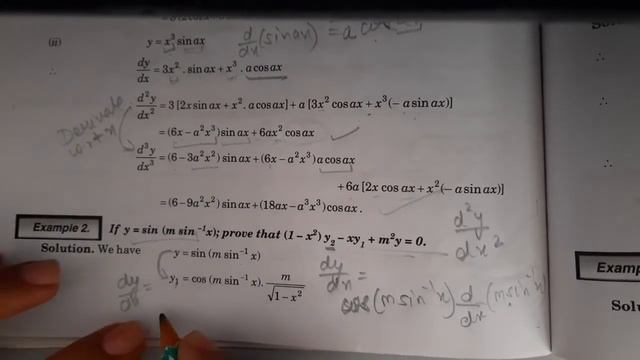 (ii) y = x³ sin ax d/dx (sin ax) = a cos
∴ dy/dx = 3x² . sin ax + x³ . a cos ax
d²y/dx² = 3 [2x sin ax + x² . a cos ax] + a [3x² cos ax + x³ (– a sin ax)]
Derivate
w.r.t x
= (6x – a²x³) sin ax + 6ax² cos ax
d³y/dx³ = (6 – 3a²x²) sin ax + (6x – a²x³) a cos ax
+ 6a [2x cos ax + x² (– a sin ax)]
= (6 – 9a²x²) sin ax + (18ax – a³x³) cos ax .
d²y/dx²
Example 2. If y = sin (m sin⁻¹x); prove that (1 – x²) y₂ – xy₁ + m²y = 0.
Solution. We have y = sin (m sin⁻¹ x)
dy/dx = y₁ = cos (m sin⁻¹ x). m/√(1 – x²) dy/dx =
cos (m sin⁻¹ x) d/dx (m sin⁻¹ x)
Solu
∴
∴
Examp